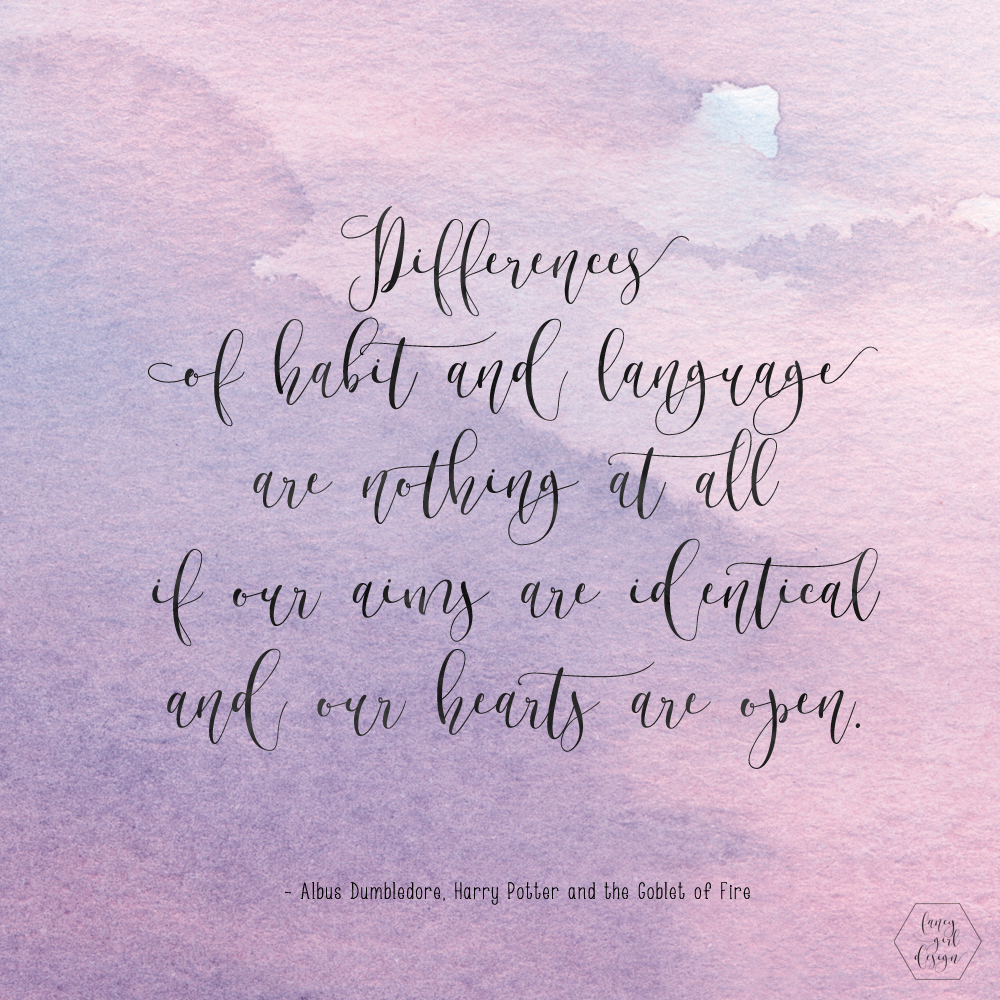 Differences
of habit and language
are nothing at all
if our aims are identical
and our hearts are open.
- Albus Dumbledore, Harry Potter and the Goblet of Fire
fancy
girl
design